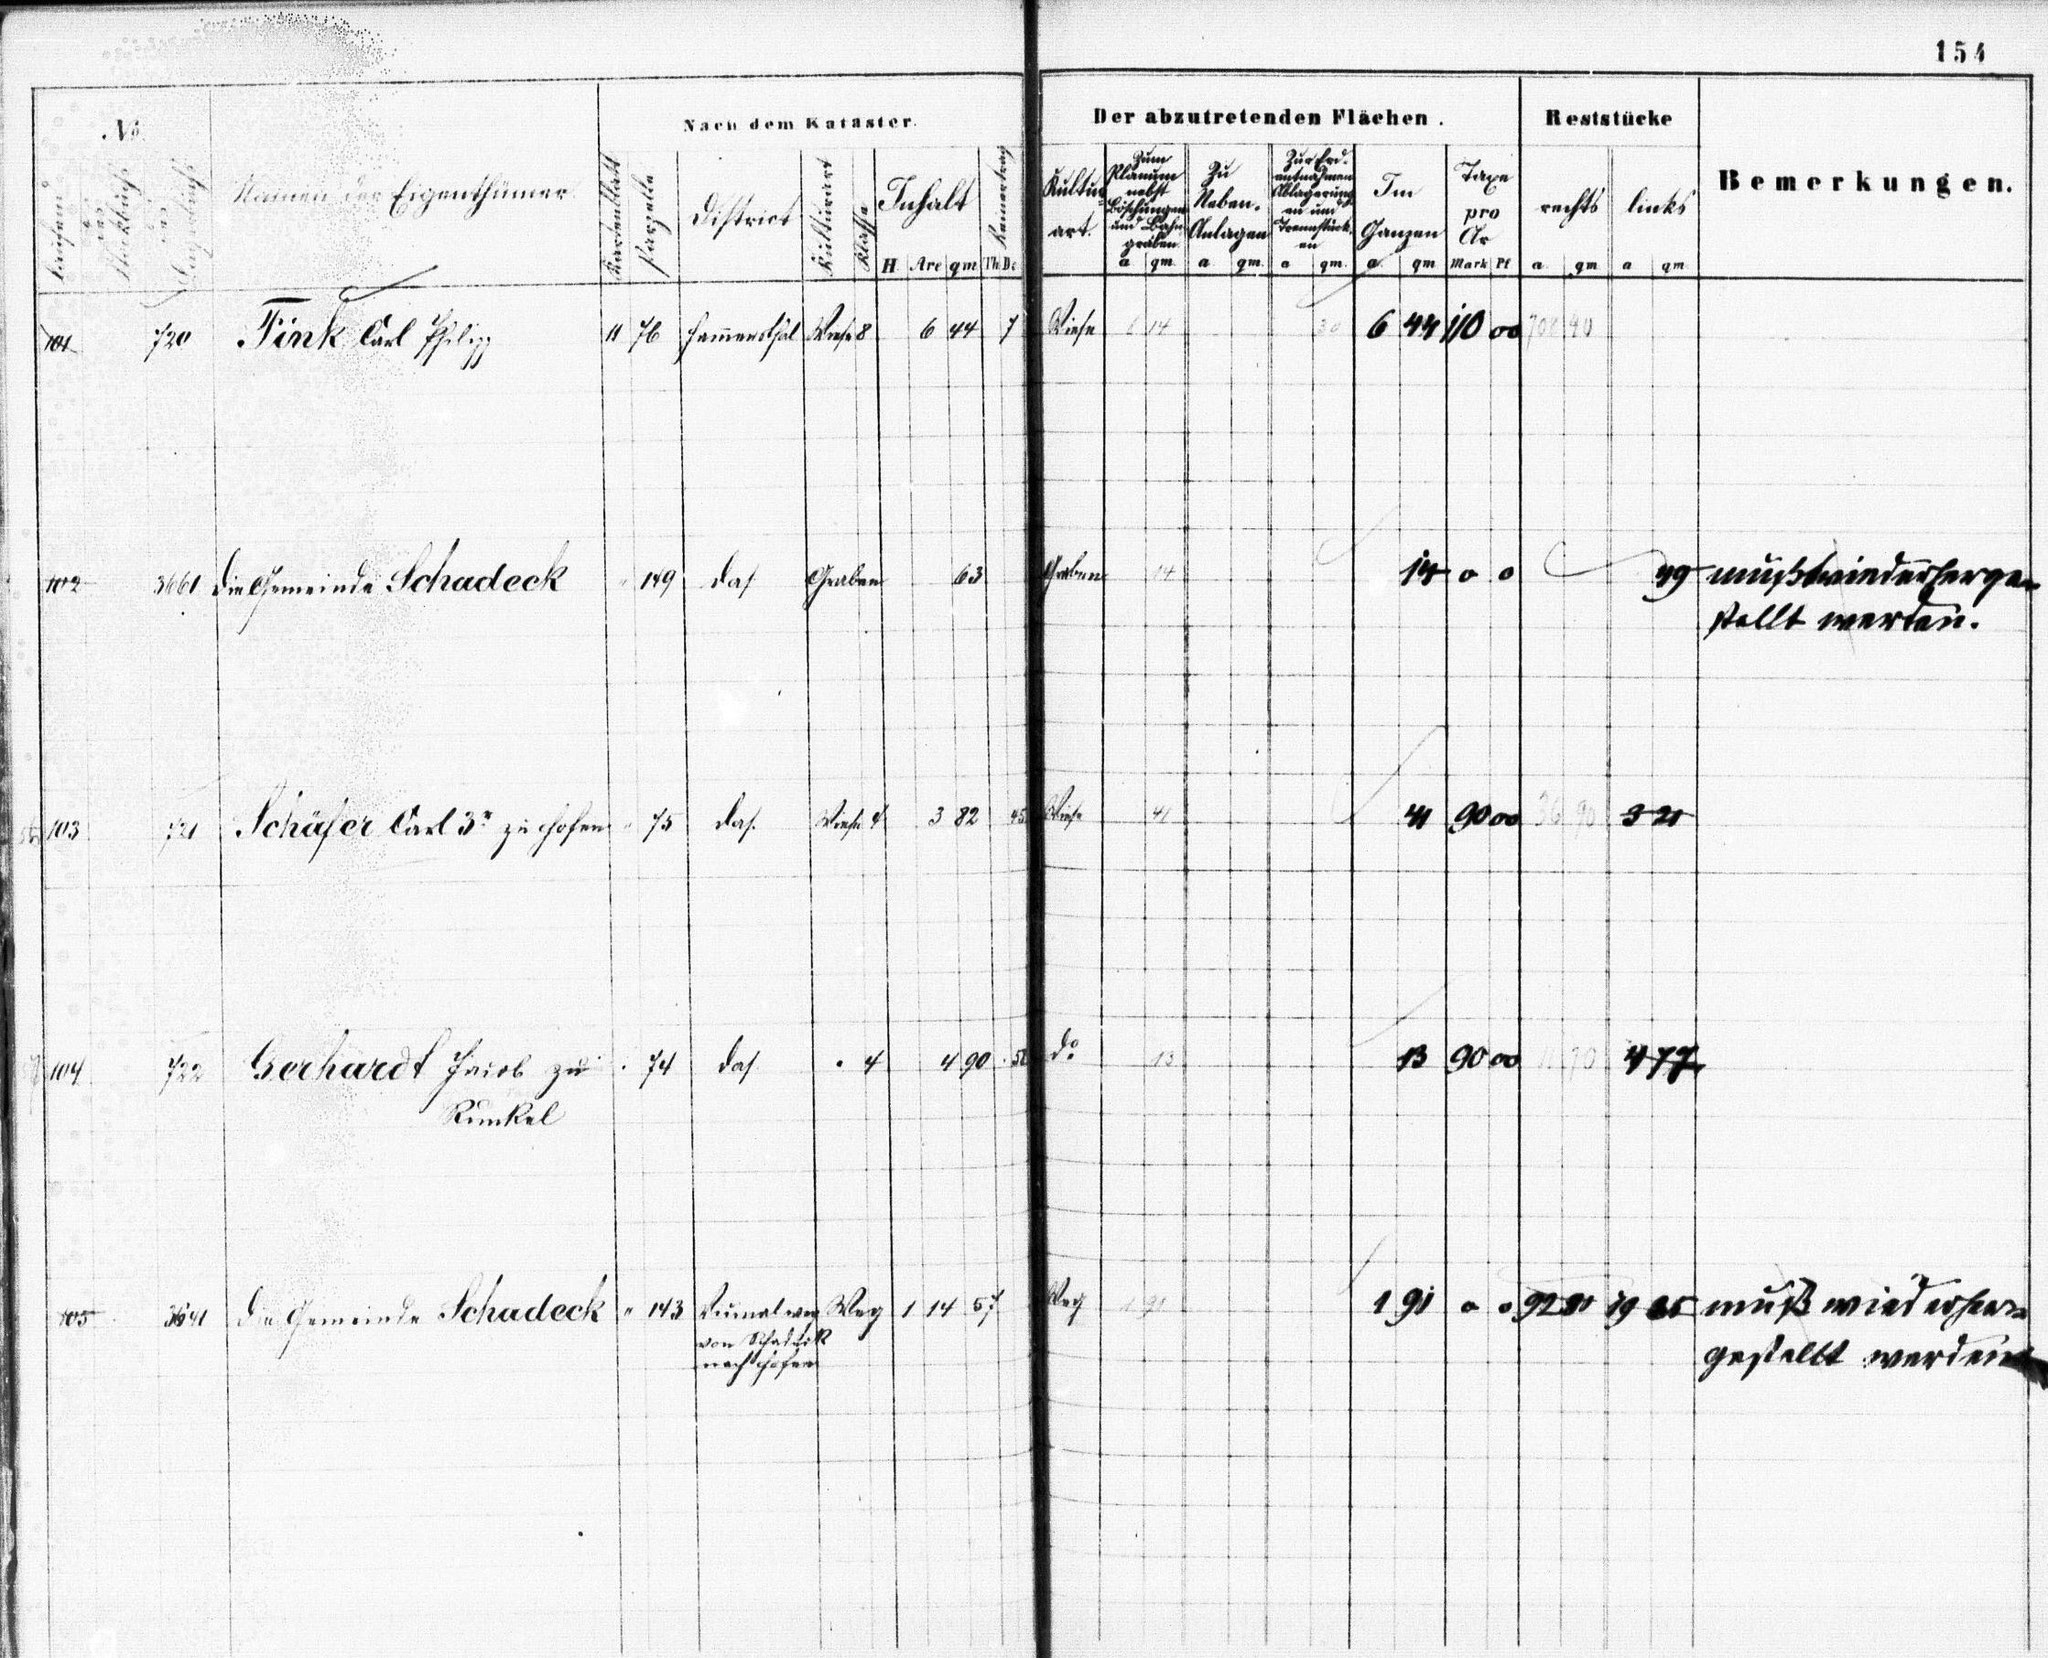 154
No
Nach dem Kataster.
Der abzutretenden Flächen.
Reststücke
Bemerkungen.
Laufend
des
Stockbuchs
des
Lagerbuchs
Namen der Eigenthümer
Kartenblatt
Parzelle
District
Kulturart
Klasse
Inhalt
H Are qm
Reinertrag
Th Dc
Kultur-
art.
Zum
Planum
nebst
Böschungen
und Bahn
gräben
a qm
Zu
Neben-
Anlagen
a qm
Zur Erd-
entnahmen
Ablagerung
en und
Trennstück
en
a qm.
Im
Ganzen
a qm
Taxe
pro
Ar
Mark Pf
rechts
a qm
links
a qm
101 720 Fink Carl Philipp 11 76 Wiese 8 6 44 7 Wiese 6 14 30 6 44 110 00
102 3661 die Gemeinde Schadeck " 149 das. Graben 63 Graben 14 14 0 0 49 muß wiederherge-
stellt werden.
103 721 Schäfer Carl 3r zu Hofen " 75 das. Wiese 4 3 82 45 Wiese 41 41 90 00 36 90 3 21
104 722 Gerhardt Jacob zu " 74 das. " 4 4 90 do. 13 13 90 00 4 77
Runkel
105 3641 die Gemeinde Schadeck " 143 Weg 1 14 57 Weg 1 91 1 91 0 0 92 19 muß wiederher-
von Schadeck
nach Hofen
gestellt werden